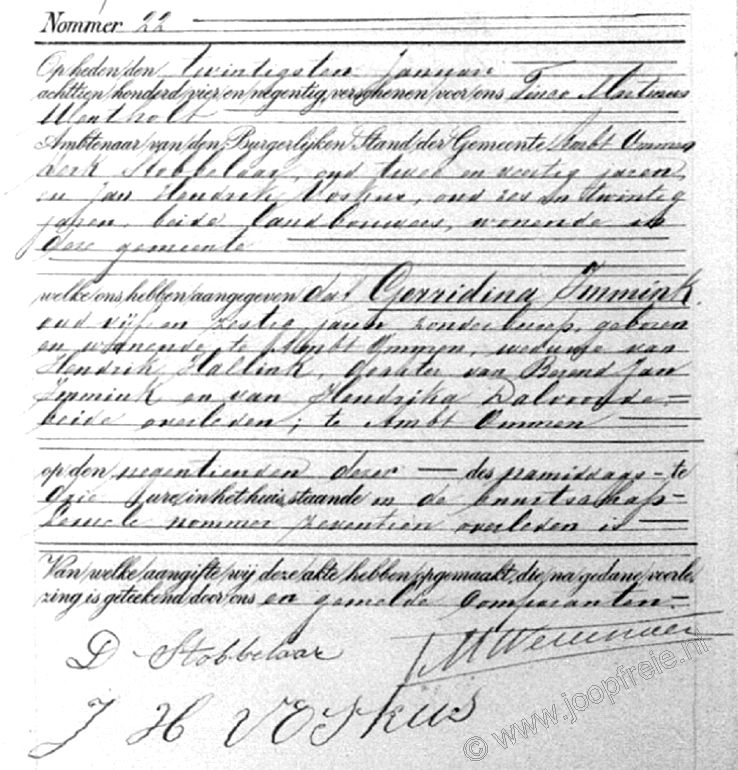 Nommer 22
Op heden den twintigsten Januari
achttien honderd vier en negentig, verschenen voor ons
Ambtenaar van den Burgerlijken Stand der Gemeente Ambt Ommen
Derk Stobbelaar, oud twee en veertig jaren,
en Jan Hendrik Voskus, oud zes en twintig
jaren, beide landbouwers, wonende in
deze gemeente
welke ons hebben aangegeven dat Gerridina Immink,
oud vijf en zestig jaren, zonder beroep, geboren
en wonende te Ambt Ommen, weduwe van
Hendrik Hallink, dochter van Berend Jan
Immink en van Hendrika Dalvoorde =
beide overleden; te Ambt Ommen
op den negentienden dezer — des namiddags - te
drie ure, in het huis, staande in de buurtschap -
Lemele nommer zeventien overleden is —
Van welke aangifte wij deze akte hebben opgemaakt, die na gedane voorle-
zing is geteekend door ons en gemelde Comparanten. =
D Stobbelaar
J H VOSkUS
© www.joopfreie.nl